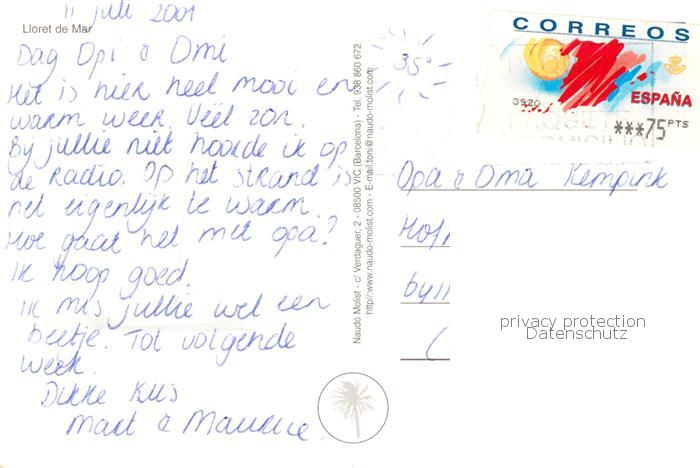 11 juli 2001
Lloret de Mar
Dag Opi & Omi
Het is hier heel mooi en
warm weer. Veel zon.
By jullie niet hoorde ik op
de radio. Op het strand is
het eigenlijk te warm.
Hoe gaat het met opa?
Ik hoop goed.
Ik mis jullie wel een
beetje. Tot volgende
week.
Dikke kus
Mart & Maurice.
Naudó Molist - c/ Verdaguer, 2 - 08500 VIC (Barcelona) - Tel. 938 860 672
http//:www.naudo-molist.com - E-mail:toni@naudo-molist.com
35°
CORREOS
ESPAÑA
3920
***75 PTS
Opa & Oma Kempink
privacy protection
Datenschutz